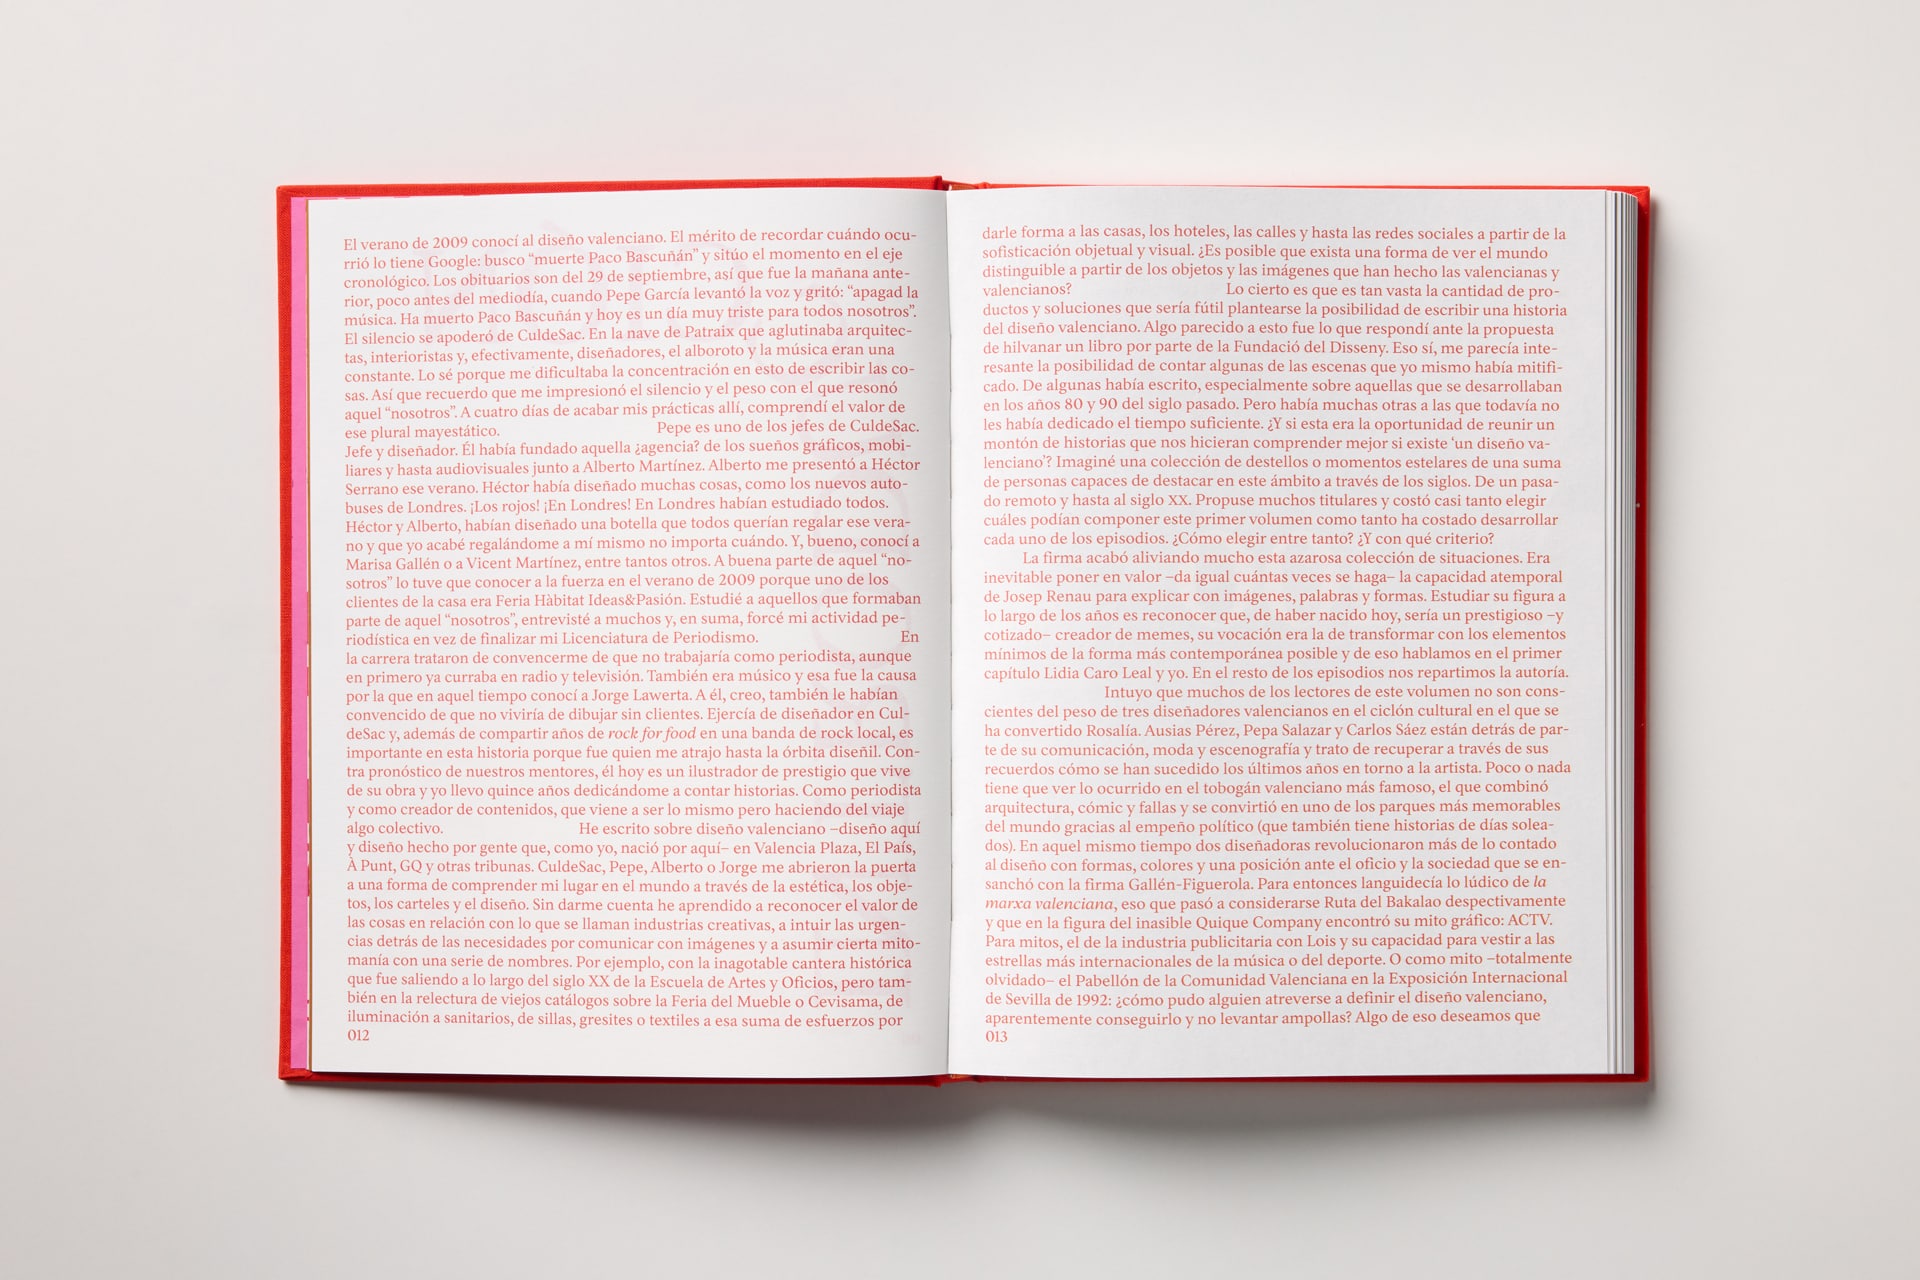 El verano de 2009 conocí al diseño valenciano. El mérito de recordar cuándo ocu-
rrió lo tiene Google: busco “muerte Paco Bascuñán” y sitúo el momento en el eje
cronológico. Los obituarios son del 29 de septiembre, así que fue la mañana ante-
rior, poco antes del mediodía, cuando Pepe García levantó la voz y gritó: “apagad la
música. Ha muerto Paco Bascuñán y hoy es un día muy triste para todos nosotros”.
El silencio se apoderó de CuldeSac. En la nave de Patraix que aglutinaba arquitec-
tas, interioristas y, efectivamente, diseñadores, el alboroto y la música eran una
constante. Lo sé porque me dificultaba la concentración en esto de escribir las co-
sas. Así que recuerdo que me impresionó el silencio y el peso con el que resonó
aquel “nosotros”. A cuatro días de acabar mis prácticas allí, comprendí el valor de
ese plural mayestático. Pepe es uno de los jefes de CuldeSac.
Jefe y diseñador. Él había fundado aquella ¿agencia? de los sueños gráficos, mobi-
liares y hasta audiovisuales junto a Alberto Martínez. Alberto me presentó a Héctor
Serrano ese verano. Héctor había diseñado muchas cosas, como los nuevos auto-
buses de Londres. ¡Los rojos! ¡En Londres! En Londres habían estudiado todos.
Héctor y Alberto, habían diseñado una botella que todos querían regalar ese vera-
no y que yo acabé regalándome a mí mismo no importa cuándo. Y, bueno, conocí a
Marisa Gallén o a Vicent Martínez, entre tantos otros. A buena parte de aquel “no-
sotros” lo tuve que conocer a la fuerza en el verano de 2009 porque uno de los
clientes de la casa era Feria Hàbitat Ideas&Pasión. Estudié a aquellos que formaban
parte de aquel “nosotros”, entrevisté a muchos y, en suma, forcé mi actividad pe-
riodística en vez de finalizar mi Licenciatura de Periodismo. En
la carrera trataron de convencerme de que no trabajaría como periodista, aunque
en primero ya curraba en radio y televisión. También era músico y esa fue la causa
por la que en aquel tiempo conocí a Jorge Lawerta. A él, creo, también le habían
convencido de que no viviría de dibujar sin clientes. Ejercía de diseñador en Cul-
deSac y, además de compartir años de rock for food en una banda de rock local, es
importante en esta historia porque fue quien me atrajo hasta la órbita diseñil. Con-
tra pronóstico de nuestros mentores, él hoy es un ilustrador de prestigio que vive
de su obra y yo llevo quince años dedicándome a contar historias. Como periodista
y como creador de contenidos, que viene a ser lo mismo pero haciendo del viaje
algo colectivo. He escrito sobre diseño valenciano –diseño aquí
y diseño hecho por gente que, como yo, nació por aquí– en Valencia Plaza, El País,
À Punt, GQ y otras tribunas. CuldeSac, Pepe, Alberto o Jorge me abrieron la puerta
a una forma de comprender mi lugar en el mundo a través de la estética, los obje-
tos, los carteles y el diseño. Sin darme cuenta he aprendido a reconocer el valor de
las cosas en relación con lo que se llaman industrias creativas, a intuir las urgen-
cias detrás de las necesidades por comunicar con imágenes y a asumir cierta mito-
manía con una serie de nombres. Por ejemplo, con la inagotable cantera histórica
que fue saliendo a lo largo del siglo XX de la Escuela de Artes y Oficios, pero tam-
bién en la relectura de viejos catálogos sobre la Feria del Mueble o Cevisama, de
iluminación a sanitarios, de sillas, gresites o textiles a esa suma de esfuerzos por
012
darle forma a las casas, los hoteles, las calles y hasta las redes sociales a partir de la
sofisticación objetual y visual. ¿Es posible que exista una forma de ver el mundo
distinguible a partir de los objetos y las imágenes que han hecho las valencianas y
valencianos? Lo cierto es que es tan vasta la cantidad de pro-
ductos y soluciones que sería fútil plantearse la posibilidad de escribir una historia
del diseño valenciano. Algo parecido a esto fue lo que respondí ante la propuesta
de hilvanar un libro por parte de la Fundació del Disseny. Eso sí, me parecía inte-
resante la posibilidad de contar algunas de las escenas que yo mismo había mitifi-
cado. De algunas había escrito, especialmente sobre aquellas que se desarrollaban
en los años 80 y 90 del siglo pasado. Pero había muchas otras a las que todavía no
les había dedicado el tiempo suficiente. ¿Y si esta era la oportunidad de reunir un
montón de historias que nos hicieran comprender mejor si existe ‘un diseño va-
lenciano’? Imaginé una colección de destellos o momentos estelares de una suma
de personas capaces de destacar en este ámbito a través de los siglos. De un pasa-
do remoto y hasta al siglo XX. Propuse muchos titulares y costó casi tanto elegir
cuáles podían componer este primer volumen como tanto ha costado desarrollar
cada uno de los episodios. ¿Cómo elegir entre tanto? ¿Y con qué criterio?
La firma acabó aliviando mucho esta azarosa colección de situaciones. Era
inevitable poner en valor –da igual cuántas veces se haga– la capacidad atemporal
de Josep Renau para explicar con imágenes, palabras y formas. Estudiar su figura a
lo largo de los años es reconocer que, de haber nacido hoy, sería un prestigioso –y
cotizado– creador de memes, su vocación era la de transformar con los elementos
mínimos de la forma más contemporánea posible y de eso hablamos en el primer
capítulo Lidia Caro Leal y yo. En el resto de los episodios nos repartimos la autoría.
Intuyo que muchos de los lectores de este volumen no son cons-
cientes del peso de tres diseñadores valencianos en el ciclón cultural en el que se
ha convertido Rosalía. Ausias Pérez, Pepa Salazar y Carlos Sáez están detrás de par-
te de su comunicación, moda y escenografía y trato de recuperar a través de sus
recuerdos cómo se han sucedido los últimos años en torno a la artista. Poco o nada
tiene que ver lo ocurrido en el tobogán valenciano más famoso, el que combinó
arquitectura, cómic y fallas y se convirtió en uno de los parques más memorables
del mundo gracias al empeño político (que también tiene historias de días solea-
dos). En aquel mismo tiempo dos diseñadoras revolucionaron más de lo contado
al diseño con formas, colores y una posición ante el oficio y la sociedad que se en-
sanchó con la firma Gallén-Figuerola. Para entonces languidecía lo lúdico de la
marxa valenciana, eso que pasó a considerarse Ruta del Bakalao despectivamente
y que en la figura del inasible Quique Company encontró su mito gráfico: ACTV.
Para mitos, el de la industria publicitaria con Lois y su capacidad para vestir a las
estrellas más internacionales de la música o del deporte. O como mito –totalmente
olvidado– el Pabellón de la Comunidad Valenciana en la Exposición Internacional
de Sevilla de 1992: ¿cómo pudo alguien atreverse a definir el diseño valenciano,
aparentemente conseguirlo y no levantar ampollas? Algo de eso deseamos que
013